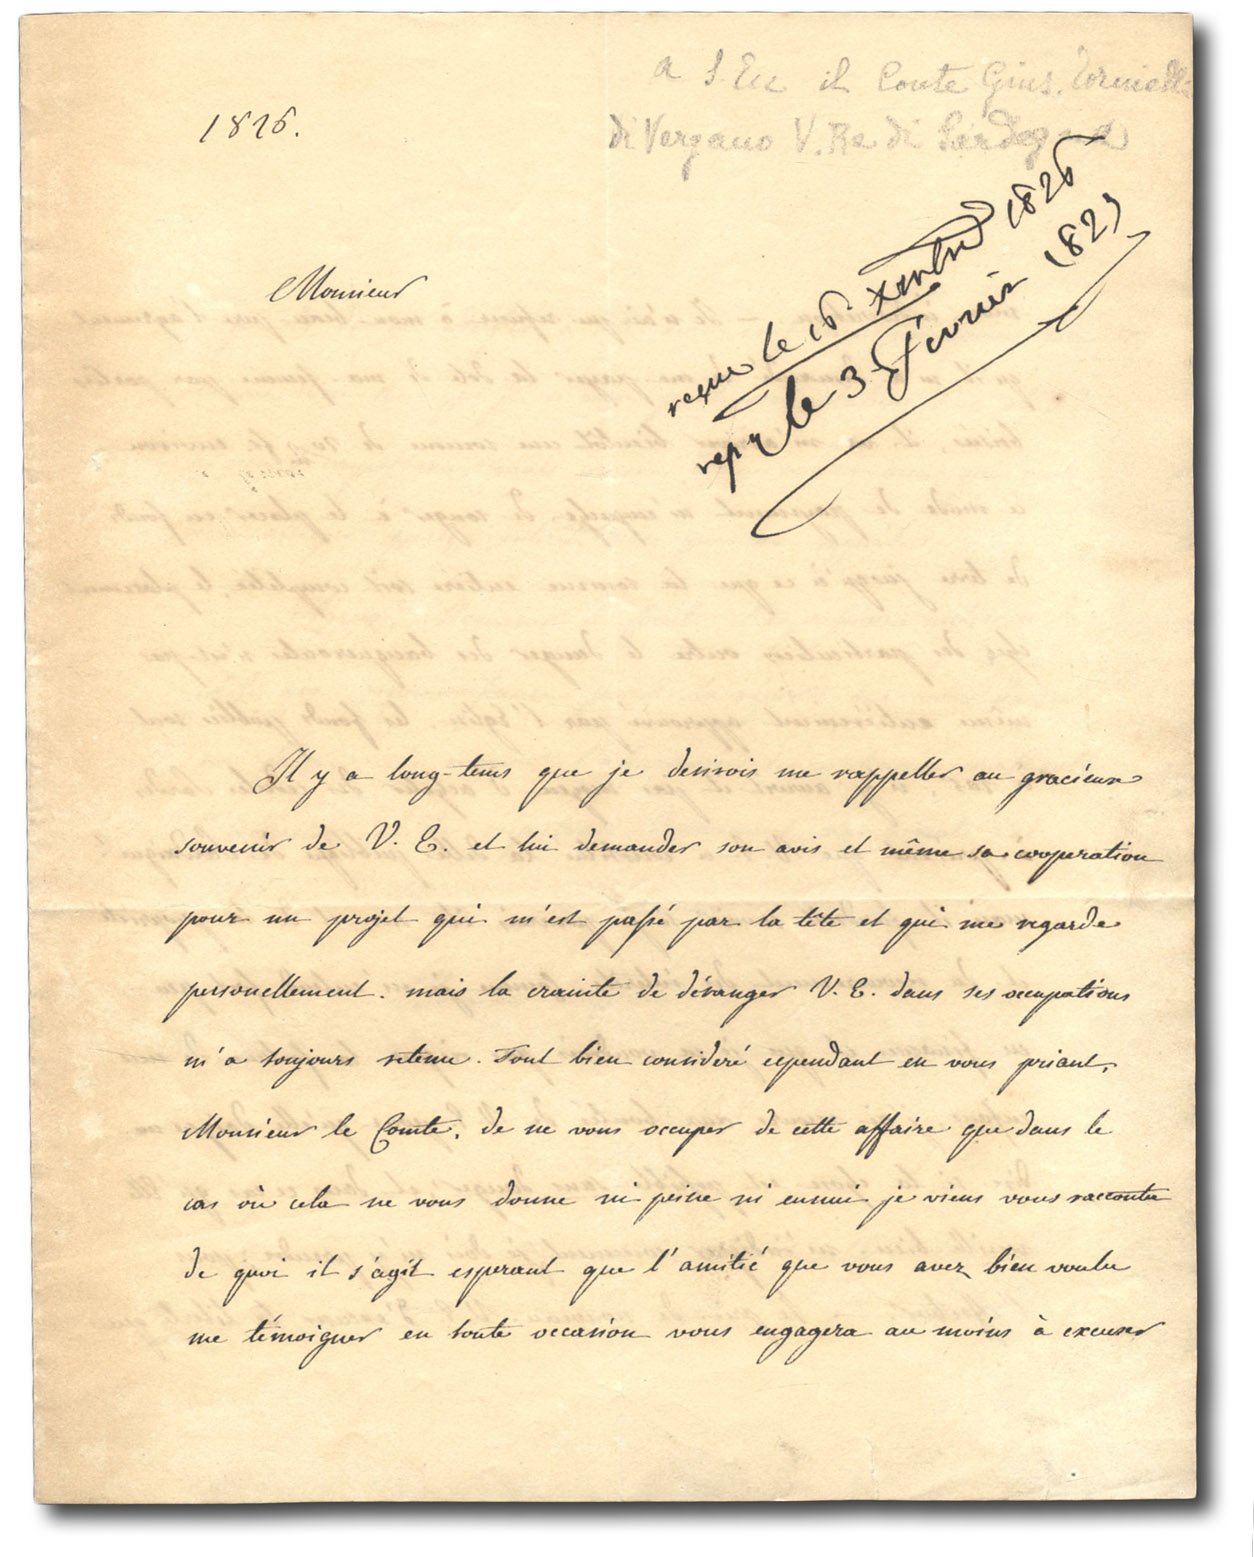 a S. Ecc il Conte Gius. Tornielli
di Vergano V. Re di Sardegna
1826.
reçue le 16 Xmbre 1826
rep le 3 Février 1827
Monsieur
Il y a long-tems que je desirois me rappeller au gracieux
souvenir de V. E. et lui demander son avis et même sa cooperation
pour un projet qui m'est passé par la tête et qui me regarde
personellement. mais la crainte de déranger V. E. dans ses occupations
m'a toujours retenu. Tout bien consideré cependant en vous priant,
Monsieur le Comte, de ne vous occuper de cette affaire que dans le
cas où cela ne vous donne ni peine ni ennui je viens vous raconter
de quoi il s'agit esperant que l'amitié que vous avez bien voulu
me témoigner en toute occasion vous engagera au moins à excuser